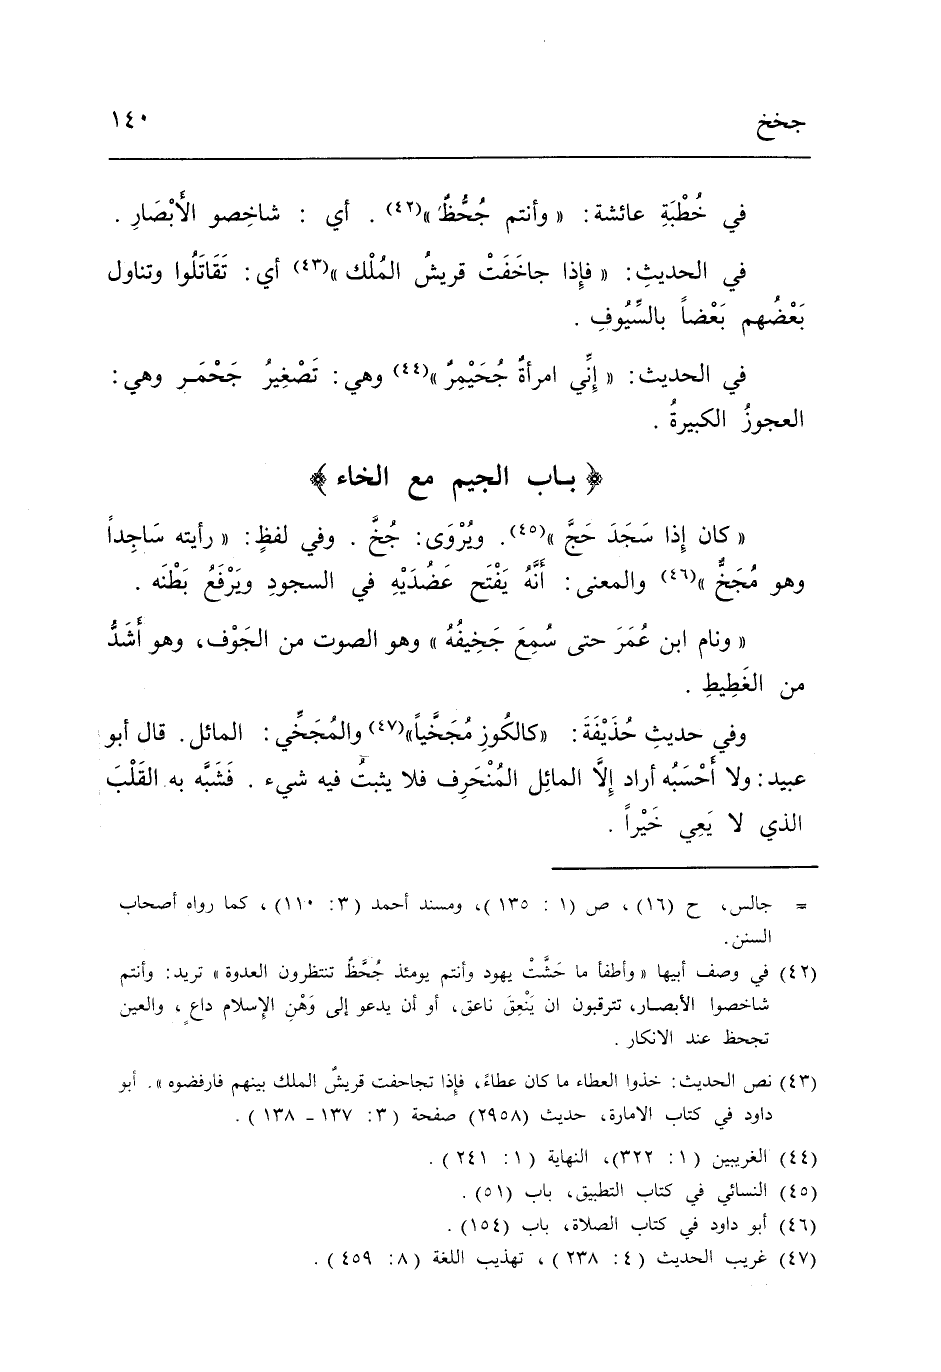 جخخ ١٤٠
في خُطْبَةِ عائشة : « وأنتم جُحُّظٌ »(٤٢) . أي : شاخِصو الأَبْصَارِ .
في الحديثِ : « فإِذا جاحَفَتْ قريشُ المُلْك »(٤٣) أي : تَقَاتَلُوا وتناول
بَعْضُهم بَعْضاً بالسِّيُوفِ .
في الحديث : « إِنِّي امرأةٌ جُحَيْمِرٌ »(٤٤) وهي : تَصْغِيرُ جَحْمَـرٍ وهي :
العجوزُ الكبيرةُ .
﴿ بـاب الجيم مع الخاء ﴾
« كان إِذا سَجَدَ جَخَّ »(٤٥) . ويُرْوَى : جُخَّ . وفي لفظٍ : « رأيته سَاجِداً
وهو مُجَخٌّ »(٤٦) والمعنى : أَنَّهُ يَفْتَح عَضُدَيْهِ في السجودِ ويَرْفَعُ بَطْنَه .
« ونام ابن عُمَرَ حتى سُمِعَ جَخِيفُهُ » وهو الصوت من الجَوْف، وهو أَشَدُّ
من الغَطِيطِ .
وفي حديثِ حُذَيْفَةَ : «كالكُوزِ مُجَخَّياً»(٤٧) والمُجَخِّي : المائل. قال أبو
عبيد : ولا أَحْسَبُه أراد إِلَّا المائِل المُنْحَرِف فلا يثبتُ فيه شيء . فَشَبَّه به القَلْبَ
الذي لا يَعِي خَيْراً .
= جالس، ح (١٦) ، ص (١ : ١٣٥ )، ومسند أحمد (٣ : ١١٠) ، كما رواه أصحاب
السنن.
(٤٢) في وصف أبيها « وأطفأ ما حَشَّتْ يهود وأنتم يومئذ جُحَّظٌ تنتظرون العدوة » تريد : وأنتم
شاخصوا الأبصار، تترقبون ان يَنْعِقَ ناعق، أو أن يدعو إلى وَهْنِ الإسلام داعٍ ، والعين
تجحظ عند الانكار .
(٤٣) نص الحديث : خذوا العطاء ما كان عطاءً، فإِذا تجاحفت قريشٌ الملك بينهم فارفضوه » . أبو
داود في كتاب الامارة، حديث (٢٩٥٨) صفحة (٣ : ١٣٧ - ١٣٨ ) .
(٤٤) الغريبين (١ : ٣٢٢)، النهاية (١ : ٢٤١ ) .
(٤٥) النسائي في كتاب التطبيق، باب (٥١) .
(٤٦) أبو داود في كتاب الصلاة، باب (١٥٤) .
(٤٧) غريب الحديث (٤ : ٢٣٨ ) ، تهذيب اللغة (٨ : ٤٥٩ ) .